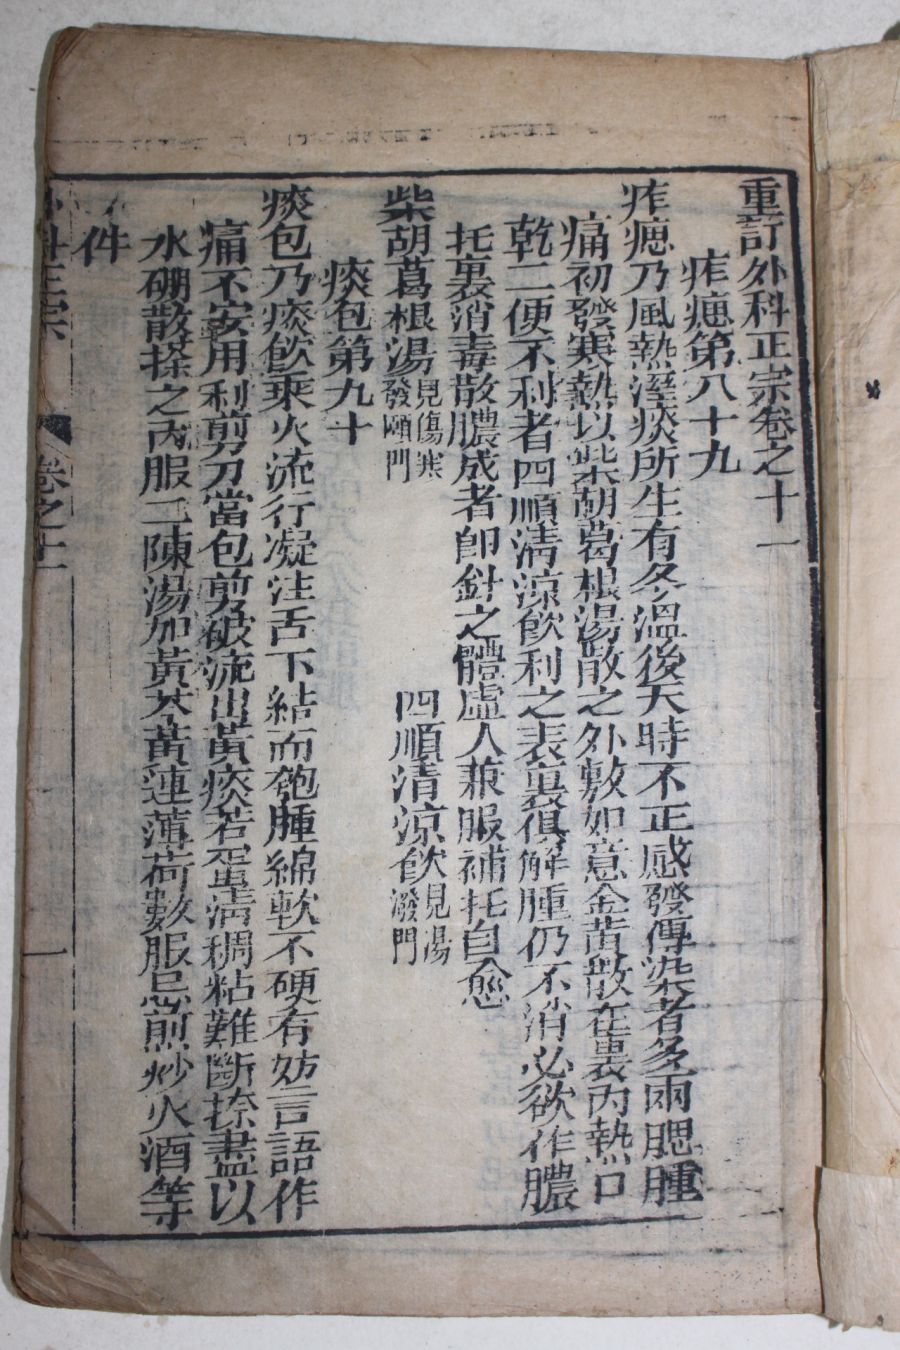 重訂外科正宗卷之十一
痄瘟第八十九
痄瘟乃風熱溼痰所生有冬溫後天時不正感發傳染者多兩腮腫
痛初發寒熱以柴胡葛根湯散之外敷如意金黃散在裏內熱口
乾二便不利者四順清涼飲利之表裏俱解腫仍不消必欲作膿
托裏消毒散膿成者即針之體虛人兼服補托自愈
柴胡葛根湯見傷寒發頤門 四順清涼飲見湯潑門
痰包第九十
痰包乃痰飲乘火流行凝注舌下結而匏腫綿軟不硬有妨言語作
痛不安用利剪刀當包剪破流出黃痰若蛋清稠粘難斷捺盡以
水硼散搽之內服二陳湯加黃芩黃連薄荷數服忌煎炒火酒等
件
外科正宗 卷之十一 一